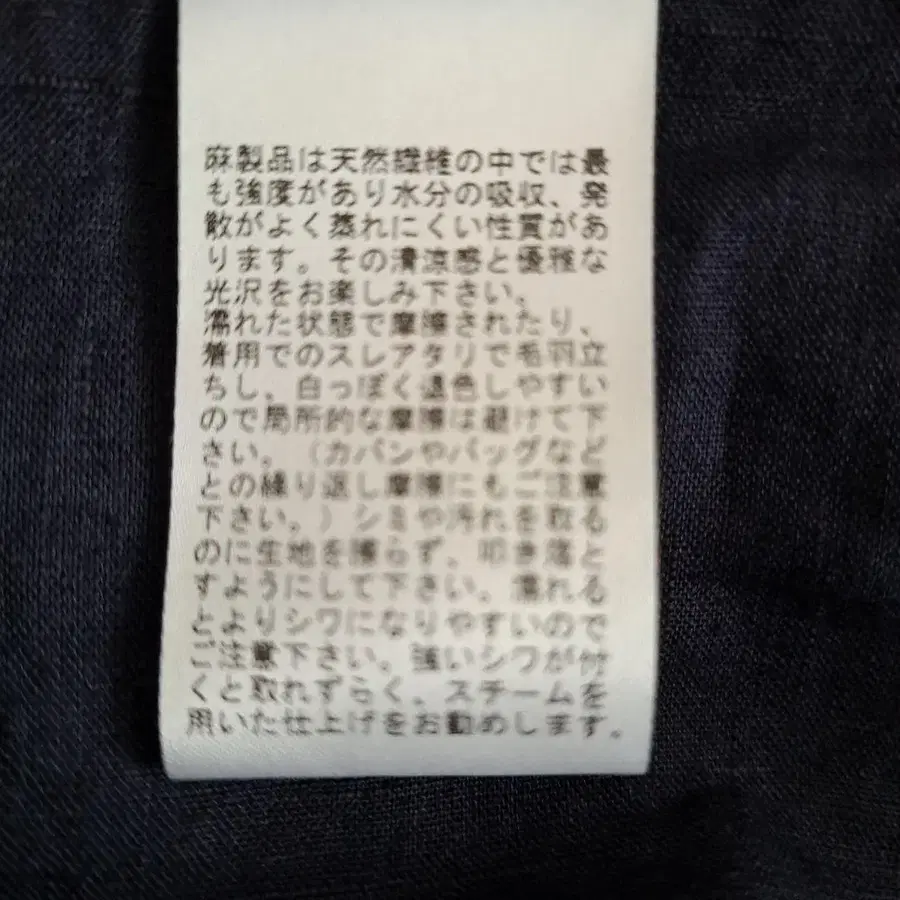 麻製品は天然繊維の中では最
も強度があり水分の吸収、発
散がよく蒸れにくい性質があ
ります。その清涼感と優雅な
光沢をお楽しみ下さい。
濡れた状態で摩擦されたり、
着用でのスレアタリで毛羽立
ちし、白っぽく退色しやすい
ので局所的な摩擦は避けて下
さい。（カバンやバッグなど
との繰り返し摩擦にもご注意
下さい。）シミや汚れを取る
のに生地を擦らず、叩き落と
すようにして下さい。濡れる
とよりシワになりやすいので
ご注意下さい。強いシワが付
くと取れずらく、スチームを
用いた仕上げをお勧めします。